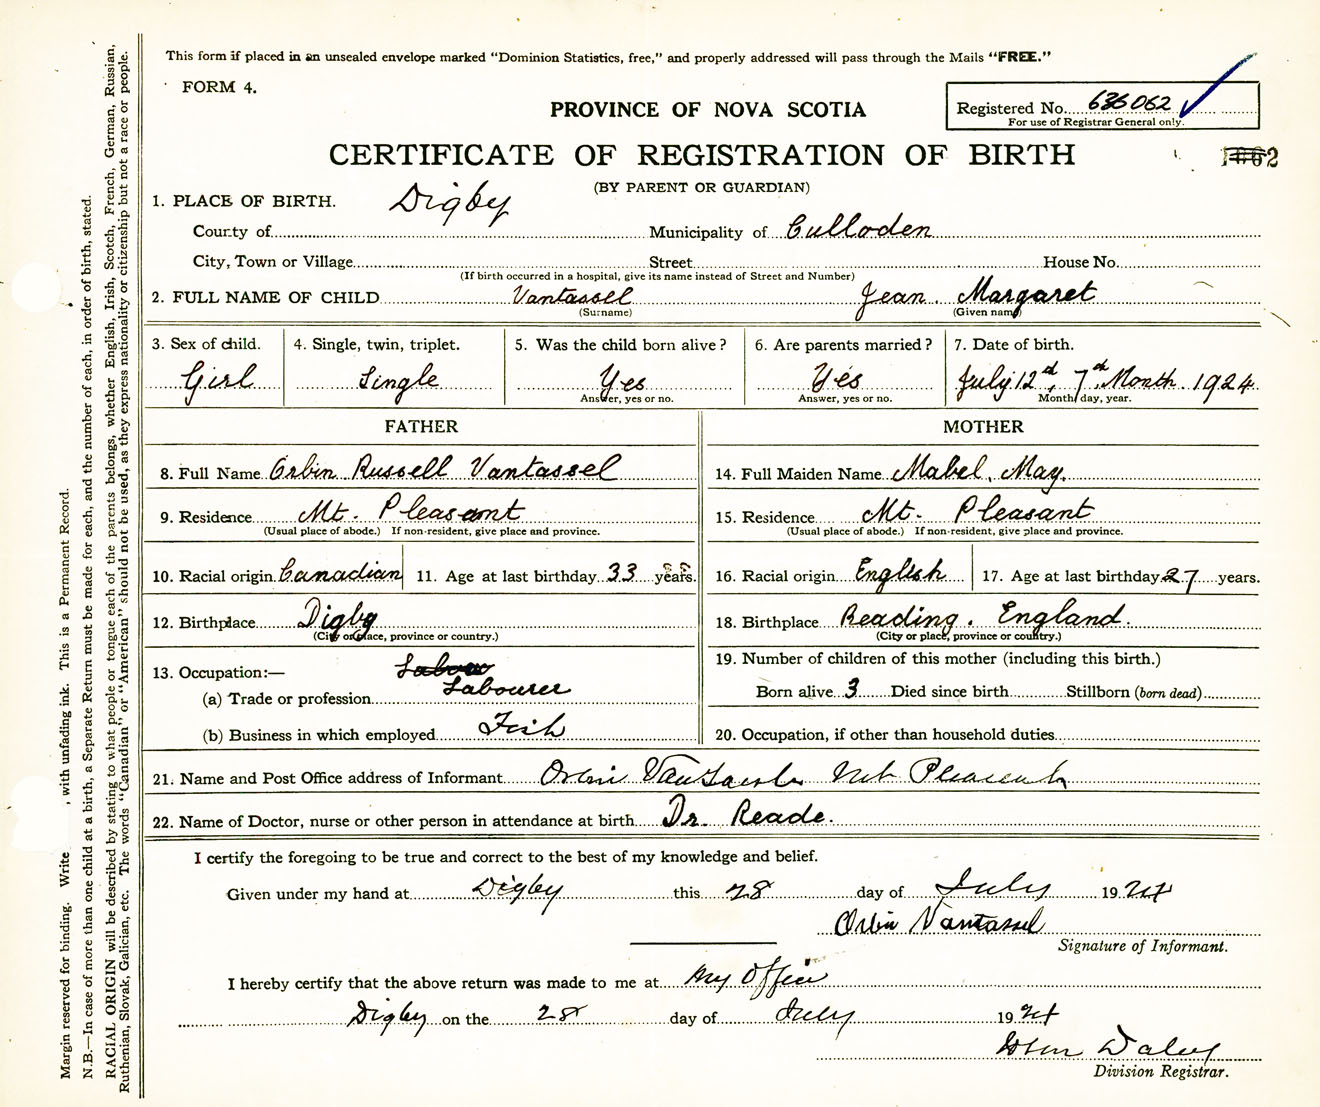 This form if placed in an unsealed envelope marked "Dominion Statistics, free," and properly addressed will pass through the Mails "FREE."
FORM 4.
PROVINCE OF NOVA SCOTIA
Registered No. 636062
For use of Registrar General only.
CERTIFICATE OF REGISTRATION OF BIRTH
(BY PARENT OR GUARDIAN)
1. PLACE OF BIRTH. Digby
County of Municipality of Culloden
City, Town or Village Street House No.
(If birth occurred in a hospital, give its name instead of Street and Number)
2. FULL NAME OF CHILD Vantassel Jean Margaret
(Surname) (Given name)
3. Sex of child. 4. Single, twin, triplet. 5. Was the child born alive? 6. Are parents married? 7. Date of birth.
Girl Single Yes Yes July 12d, 7th Month. 1924
Answer, yes or no. Answer, yes or no. Month, day, year.
FATHER MOTHER
8. Full Name Orbin Russell Vantassel 14. Full Maiden Name Mabel, May,
9. Residence Mt. Pleasant 15. Residence Mt. Pleasant
(Usual place of abode.) If non-resident, give place and province. (Usual place of abode.) If non-resident, give place and province.
10. Racial origin Canadian 11. Age at last birthday 33 years. 16. Racial origin English 17. Age at last birthday 27 years.
12. Birthplace Digby 18. Birthplace Reading. England.
(City or place, province or country.) (City or place, province or country.)
13. Occupation:— 19. Number of children of this mother (including this birth.)
(a) Trade or profession Labourer Born alive 3 Died since birth Stillborn (born dead)
(b) Business in which employed Fish 20. Occupation, if other than household duties
21. Name and Post Office address of Informant Orbin Vantassel Mt Pleasant
22. Name of Doctor, nurse or other person in attendance at birth Dr. Reade.
I certify the foregoing to be true and correct to the best of my knowledge and belief.
Given under my hand at Digby this 28 day of July 1924
Orbin Vantassel
Signature of Informant.
I hereby certify that the above return was made to me at my Office
Digby on the 28 day of July 1924
Daley
Division Registrar.
Margin reserved for binding. Write , with unfading ink. This is a Permanent Record.
N.B.—In case of more than one child at a birth, a Separate Return must be made for each, and the number of each, in order of birth, stated.
RACIAL ORIGIN will be described by stating to what people or tongue each of the parents belongs, whether English, Irish, Scotch, French, German, Russian,
Ruthenian, Slovak, Galician, etc. The words "Canadian" or "American" should not be used, as they express nationality or citizenship but not a race or people.